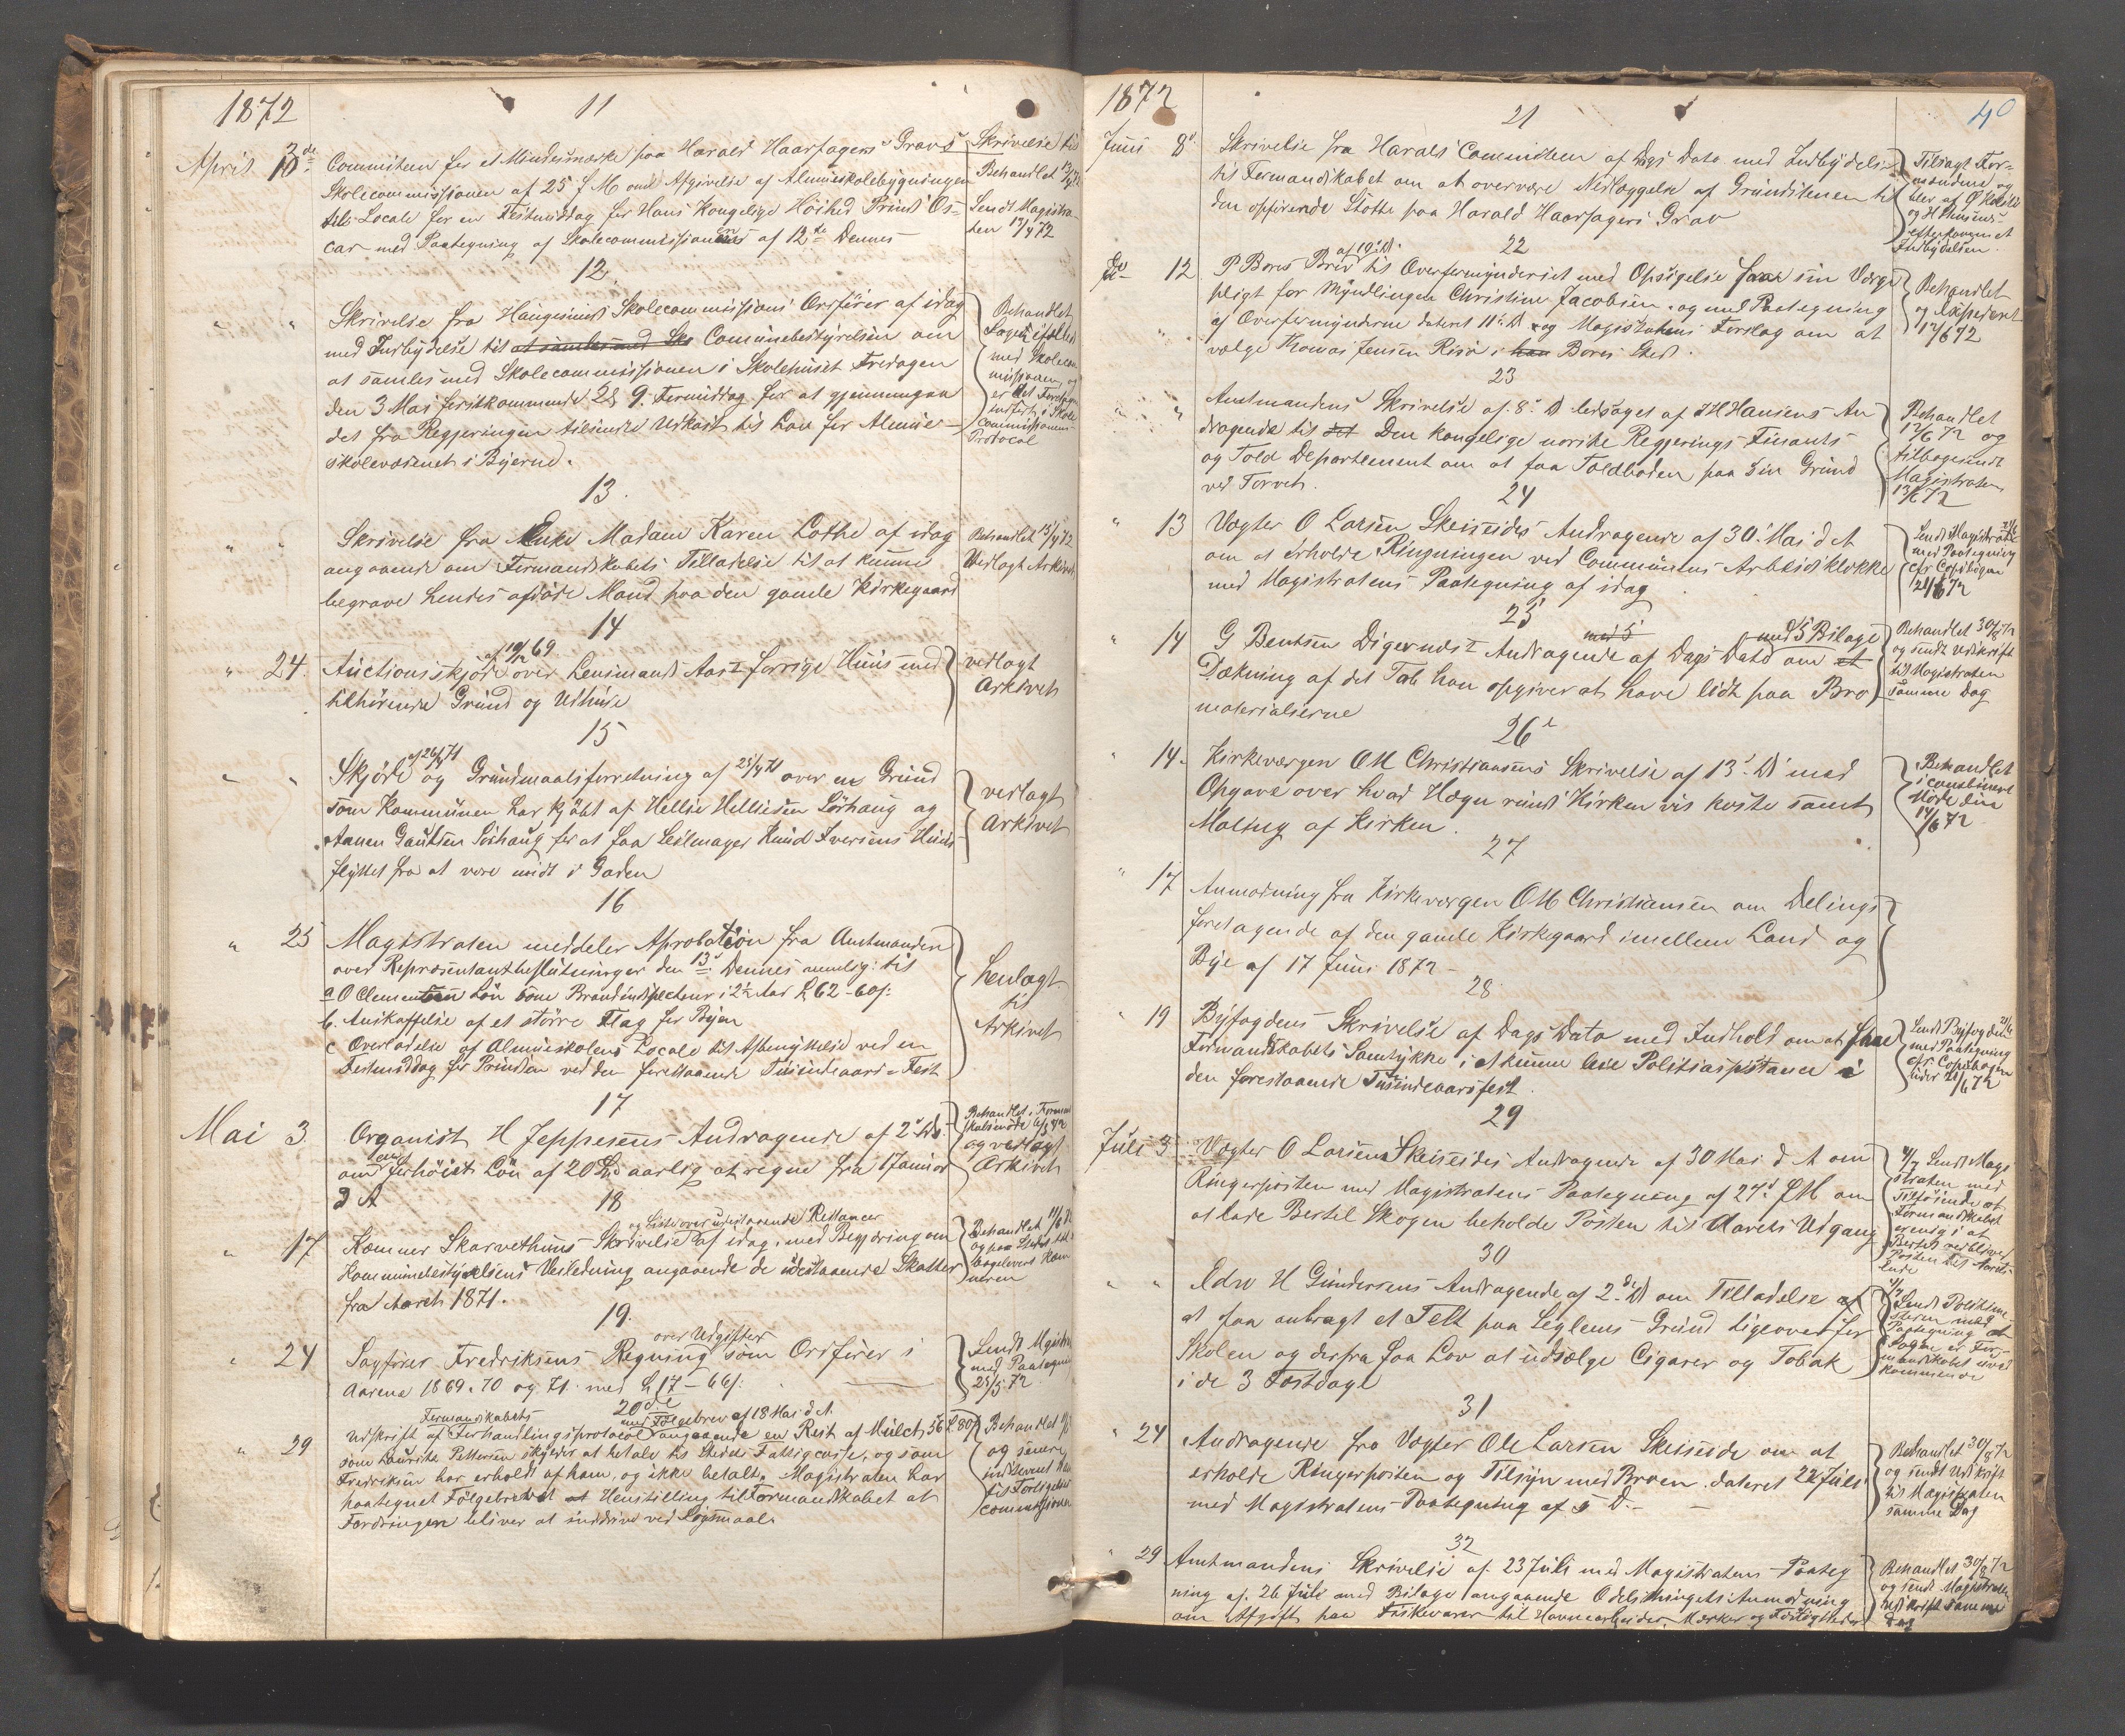 1872
11
April 13de
Commiteen for et Mindesmærke paa Harald Haarfagers Gravs
Skolecommissionen af 25 f M om Afgivelse af Almueskolebygningen
Locale for en Festmiddag for Hans Kongelige Höihed Prinds Os-
car med Paategning af Skolecommissionen af 12te Dennes
Skrivelse til
Behandlet
Sendt Magistra
ten 13/4 72
12
" "
Skrivelse fra Haugesunds Skolecommissions Ordförer af idag
med Indbydelse til at samles med Sko Communebestyrelsen om
at samles med Skolecommissionen i Skolehuset Fredagen
den 3 Mai förstkommende Kl 9. Formiddag for at gjennemgaa
det fra Regjeringen tilsendte Udkast til Lov for Almue-
skolevæsenet i Byerne.
Behandlet
med Skolecom
missionen og
er det
indfört i Skole
commissionens
Protocol
13.
" "
Skrivelse fra Enke Madam Karen Lothe af idag
angaaende om Formandskabets Tilladelse til at kunne
begrave hendes afdöde Mand paa den gamle Kirkegaard
Behandlet 15/4 72
Vedlagt Arkivet
14
" 24.
Auctionsskjöde af 19/12 69 over Lensmand Aars forrige Huus med
tilhörende Grund og Udhuse
vedlagt
Arkivet
15
" "
Skjöde af 26/4 71 og Grundmaalsforretning af 25/4 71 over en Grund
som Kommunen har kjöbt af Hellie Helliesen Sörhaug og
Aanen Gautsen Sörhaug for at faa Seilmager Knud Iversens Huus
flyttet fra at være midt i Gaden
vedlagt
Arkivet
16
" 25
Magistraten meddeler Aprobation fra Amtmanden
over Repræsentantbeslutninger den 13de Dennes nemlig: til
a O Clementsen Lön som Brandinspecteur i 2½ Aar 62 - 60 s:
b. Anskaffelse af et större Flag for Byen
c Overladelse af Almueskolens Locale til Afbenyttelse ved en
Festmiddag for Prindsen ved den forestaaende Tusindaars-Fest
henlagt
til
Arkivet
17
Mai 3.
Organist H Jeppesens Andragende af 2d Ds
om en forhöiet Lön af 20 Spd aarlig at regne fra 1 Januar
d A
Behandlet i Formand
skabsmöde 6/5 72
og vedlagt
Arkivet
18
" 17
Kæmner Skarvethuns Skrivelse og Liste over udestaaende Restancer af idag, med Begjæring om
Kommunebestyrelsens Veiledning angaaende de udestaaende Skatter
fra Aaret 1871.
Behandlet
og paa Stedet til
bagelevert Kæm
neren
19.
" 24
Sagförer Fredriksens Regning over Udgifter som Ordförer i
Aarene 1869. 70 og 71. med 17 - 66 s:
Sendt Magistra
med Paategning
25/5 72
20de
" 29
Udskrift af Formandskabets Forhandlingsprotocol med Fölgebrev af 18 Mai d A. angaaende en Rest af Mulct, 56 80
som Lauritz Pettersen skylder at betale til Stedets Fattigcasse, og som
Fredriksen har erholdt af ham, og ikke betalt. Magistraten har
paategnet Fölgebrevet at Henstilling til Formandskabet at
Fordringen bliver at inddrive ved Lögsmaal.
Behandlet
og senere
indlevert
til Forligelses
commissionen
1872
40
21
Juni 8de
Skrivelse fra Haralds Commiteen af Dags Dato med Indbydelse
til Formandskabet om at overvære Nedlæggelse af Grundstenen til
den opförende Stötte paa Harald Haarfagers Grav
Tilsagt For-
mændene og
blev af
og
efterkommet
Indbydelsen.
22
Do 12
P Bores Brev af 10de D. til Overformynderiet med Opsigelse fra sin Værge
pligt for Myndlingen Christine Jacobsen, og med Paategning
af Overformynderne dateret 11te D og Magistratens Forslag om at
vælge Thomas Jensen Risö i han Bores Sted.
Behandlet
og Expederet
12/6 72
23
" "
Amtmandens Skrivelse af 8de D ledsaget af J H Hansens An
dragende til det Den kongelige norske Regjerings Finants
og Told Departement om at faa Toldboden paa sin Grund
ved Torvet.
Behandlet
12/6 72 og
tilbagesendt
Magistraten
13/6 72
24
" 13
Vægter O Larsen Skeiseides Andragende af 30te Mai d A
om at erholde Ringningen ved Communens Arbeidsklokke
med Magistratens Paategning af idag
Sendt Magistraten
med Paategning
efr Copibogen
21/6 72
25
" 14
G Bentsen Digernes Andragende af Dags Dato med 5 Bilage om et
Dækning af det Tab han opgiver at have lidt paa Bro
materialierne
Behandlet 30/8 72
og sendt Udskrift
til Magistraten
samme Dag
26
" 14.
Kirkeværgen O M Christiansens Skrivelse af 13de D med
Opgave over hvad Hægn rundt Kirken vis koste samt
Maling af Kirken.
Behandlet
i combineret
Möde den
14/6 72
27
" 17
Anmodning fra Kirkeværgen O M Christiansen om Delings
foretagende af den gamle Kirkegaard imellem Land og
Bye af 17 Juni 1872 -
28
" 19
Byfogdens Skrivelse af Dags Dato med Indhold om at faae
Formandskabets Samtykke i at kunne leie Politiaspistance i
den forestaaende Tusindeaarsfest.
Sendt Byfogden
med Paategning
efr Copibogen
under 21/6 72
29
Juli 3
Vægter O Larsen Skeiseides Andragende af 30 Mai d A om
Ringerposten med Magistratens Paategning af 27d f M om
at lade Bertel Skogen beholde Posten til Aarets Udgang
4/7 Sendt Magi
straten med
Tilföiende at
Formandskabet
er enig i at
Bertel vedbliver
Posten til Aarets
Ende
30
" "
Edw H Gundersens Andragende af 2de D om Tilladelse af
at faa anbragt et Telt paa Seglems Grund ligeoverfor
Skolen og derfra faa Lov at udsælge Cigarer og Tobak
i de 3 Festdage
Sendt Politime
steren med
Paategning at
Sagen er For-
mandskabet uved
kommende
31
" 24
Andragende fra Vægter Ole Larsen Skeiseide om at
erholde Ringerposten og Tilsyn med Broen. dateret 22 Juli
med Magistratens Paategning af s D. -
Behandlet 30/8 72
og sendt Udskrift
til Magistraten
samme Dag
32
" 29
Amtmandens Skrivelse af 23 Juli med Magistratens Paateg
ning af 26 Juli med Bilage angaaende Odelsthingets Anmodning
om Afgift paa Fiskevarer til Havnearbeider, Mærker og Fortöiningsteder
Behandlet 30/8 72
og sendt Magistraten
Udskrift samme
Dag